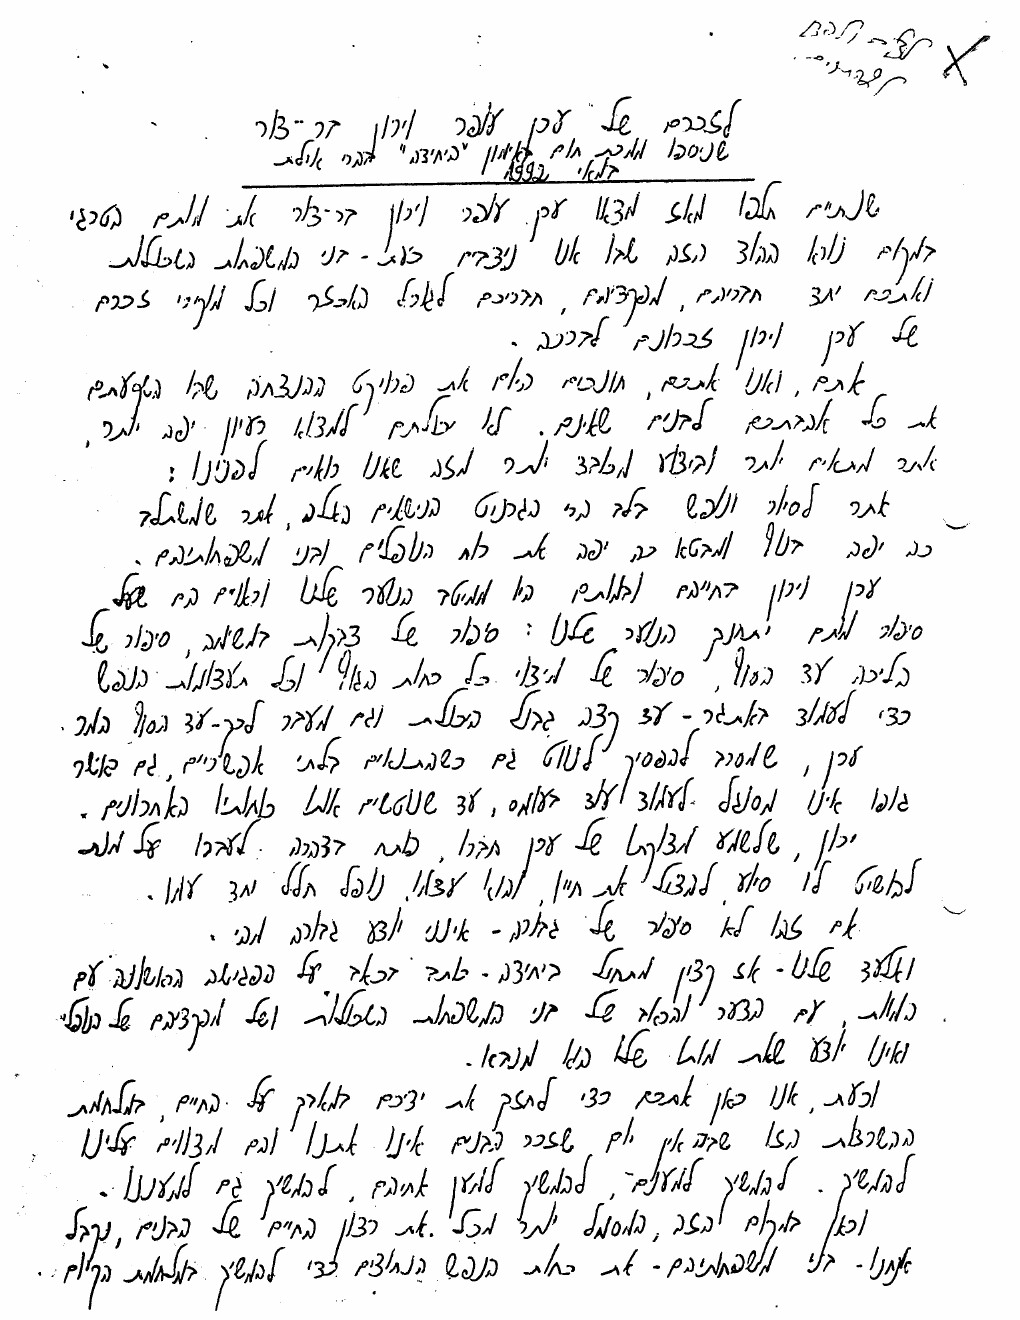 לזכרם של ערן עופר וירון בר-צור
שניספו ממכת חום באימון "ביחידה" בהרי אילת
במאי 1992
שנתיים חלפו מאז מצאו ערן עופר וירון בר-צור את מותם הטרגי
במקום נורא ההוד הזה שבו אנו ניצבים כעת - בני המשפחות השכולות
ואתכם יחד חבריהם, מפקדיהם, חבריכם לגורל האכזר וכל מוקירי זכרם
של ערן וירון זכרונם לברכה.
אתם, ואנו אתכם, חונכים היום את פרויקט ההנצחה שבו השקעתם
את כל אהבתכם לבנים שאינם. לא יכולתם למצוא רעיון יפה יותר,
אתר מתאים יותר וביצוע מכובד יותר מזה שאנו רואים לפנינו:
אתר לסיור ונופש בלב הרי הגרניט הנישאים האלה, אתר שמשתלב
כה יפה בנוף ומבטא כה יפה את רוח הנופלים ובני משפחותיהם.
ערן וירון בחייהם ובמותם היו ממיטב הנוער שלנו וראויים הם שעל
סיפור מותם יתחנך הנוער שלנו: סיפור של דבקות במשימה, סיפור של
הליכה עד הסוף, סיפור של מיצוי כל כוחות הגוף וכל תעצומות הנפש
כדי לעמוד באתגר - עד קצה גבול היכולת וגם מעבר לכך - עד הסוף המר.
ערן, שמסרב להפסיק לנווט גם כשהתנאים בלתי אפשריים, גם כאשר
גופו אינו מסוגל לעמוד עוד בעומס, עד שנוטשים אותו כוחותיו האחרונים.
ירון, שלשמע מצוקתו של ערן חברו, פתח בדהרה לעברו על מנת
להושיט לו סיוע, להציל את חייו, והוא עצמו נופל חלל יחד עמו.
אם זהו לא סיפור של גבורה - אינני יודע גבורה מהי.
ואלעד שלנו - אז קצין מתחיל ביחידה - כותב בכאב על הפגישה הראשונה עם
המוות, עם הצער והכאב של בני המשפחות השכולות ושל מפקדיהם של הנופלים
ואינו יודע שאת מותו שלו הוא מנבא.
וכעת, אנו כאן אתכם כדי לחזק את ידיכם במאבק על החיים, במלחמת
ההשרדות הזו שבה אין יום שזכר הבנים אינו אתנו והם מצווים עלינו
להמשיך. להמשיך למענם, להמשיך למען אחיהם, להמשיך גם למעננו.
וכאן במקום הזה, המסמל יותר מכל את רצון החיים של הבנים, נקבל
אנחנו - בני משפחותיהם - את כוחות הנפש הנחוצים כדי להמשיך במלחמת הקיום.